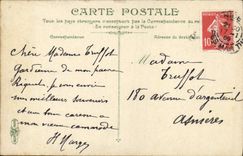 CARTE POSTALE
Tous les pays étrangers n'acceptent pas la Correspondance au
Se renseigner à la Poste
Correspondance
Adresse du destinataire
10
Chère Madame Truffot
Gardienne de mon
je vous envoie
mes meilleurs souvenirs
et un bon
à
mon vieux camarade
H Marge
Madame
Truffot
180 avenue d'argenteuil
Asnières